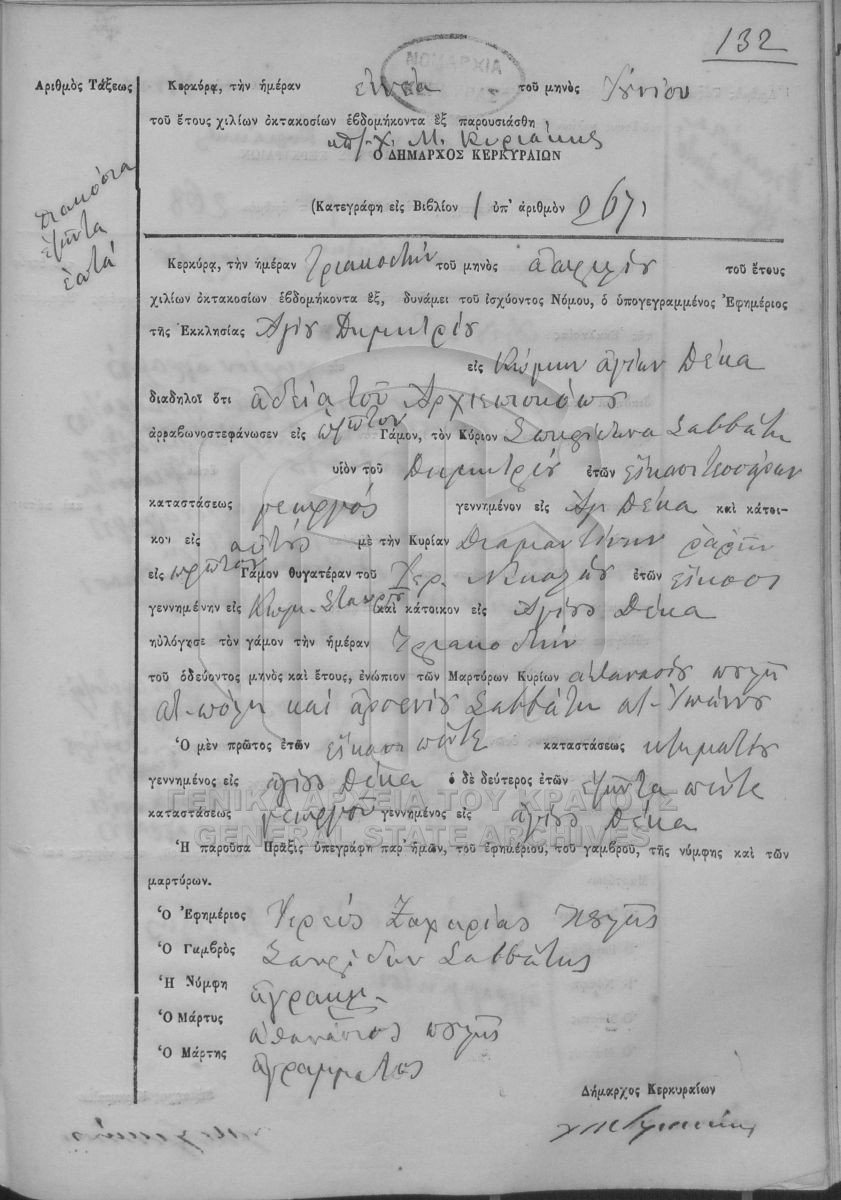 132
ΝΟΜΑΡΧΙΑ
Ἀριθμὸς Τάξεως
Κερκύρᾳ, τὴν ἡμέραν ἐννέα τοῦ μηνὸς Ἰουνίου
τοῦ ἔτους χιλίων ὀκτακοσίων ἑβδομήκοντα ἓξ παρουσιάσθη
Μ. Κυριάκης
Ὁ ΔΗΜΑΡΧΟΣ ΚΕΡΚΥΡΑΙΩΝ
διακόσια
ἑξῆντα
ἑπτά
(Κατεγράφη εἰς Βιβλίον 1 ὑπ' ἀριθμὸν 267)
Κερκύρᾳ, τὴν ἡμέραν τριακοστήν τοῦ μηνὸς ἀπριλίου τοῦ ἔτους
χιλίων ὀκτακοσίων ἑβδομήκοντα ἓξ, δυνάμει τοῦ ἰσχύοντος Νόμου, ὁ ὑπογεγραμμένος Ἐφημέριος
τῆς Ἐκκλησίας Ἁγίου Δημητρίου
εἰς Κώμην ἁγίων Δέκα
διαδηλοῖ ὅτι ἀδείᾳ τοῦ Ἀρχιεπισκόπου
ἀρραβωνοστεφάνωσεν εἰς πρῶτον Γάμον, τὸν Κύριον Σπυρίδωνα Σαββάτη
υἱὸν τοῦ Δημητρίου ἐτῶν εἴκοσι τεσσάρων
καταστάσεως γεωργός γεννημένον εἰς Ἁγ Δέκα καὶ κάτοι-
κον εἰς αὐτός μὲ τὴν Κυρίαν Διαμαντίνην
εἰς πρῶτον Γάμον θυγατέραν τοῦ Νικολάου ἐτῶν εἴκοσι
γεννημένην εἰς Κωμ. Σταυροῦ καὶ κάτοικον εἰς Ἁγίου Δέκα
ηὐλόγησε τὸν γάμον τὴν ἡμέραν τριακοστήν
τοῦ ὁδεύοντος μηνὸς καὶ ἔτους, ἐνώπιον τῶν Μαρτύρων Κυρίων ἀθανασίου
καί ἀρσενίου Σαββάτη
Ὁ μὲν πρῶτος ἐτῶν εἴκοσι πέντε καταστάσεως κτηματίου
γεννημένος εἰς ἁγίου Δέκα ὁ δὲ δεύτερος ἐτῶν ἑξῆντα πέντε
καταστάσεως γεωργοῦ γεννημένος εἰς ἁγίου Δέκα
ΓΕΝΙΚΑ ΑΡΧΕΙΑ ΤΟΥ ΚΡΑΤΟΥΣ
GENERAL STATE ARCHIVES
Ἡ παροῦσα Πρᾶξις ὑπεγράφη παρ' ἡμῶν, τοῦ ἐφημερίου, τοῦ γαμβροῦ, τῆς νύμφης καὶ τῶν
μαρτύρων.
Ὁ Ἐφημέριος Ἱερεύς Ζαχαρίας
Ὁ Γαμβρὸς Σπυρίδων Σαββάτης
Ἡ Νύμφη ἀγράμμ.
Ὁ Μάρτυς ἀθανάσιος
Ὁ Μάρτης ἀγράμματος
Δήμαρχος Κερκυραίων